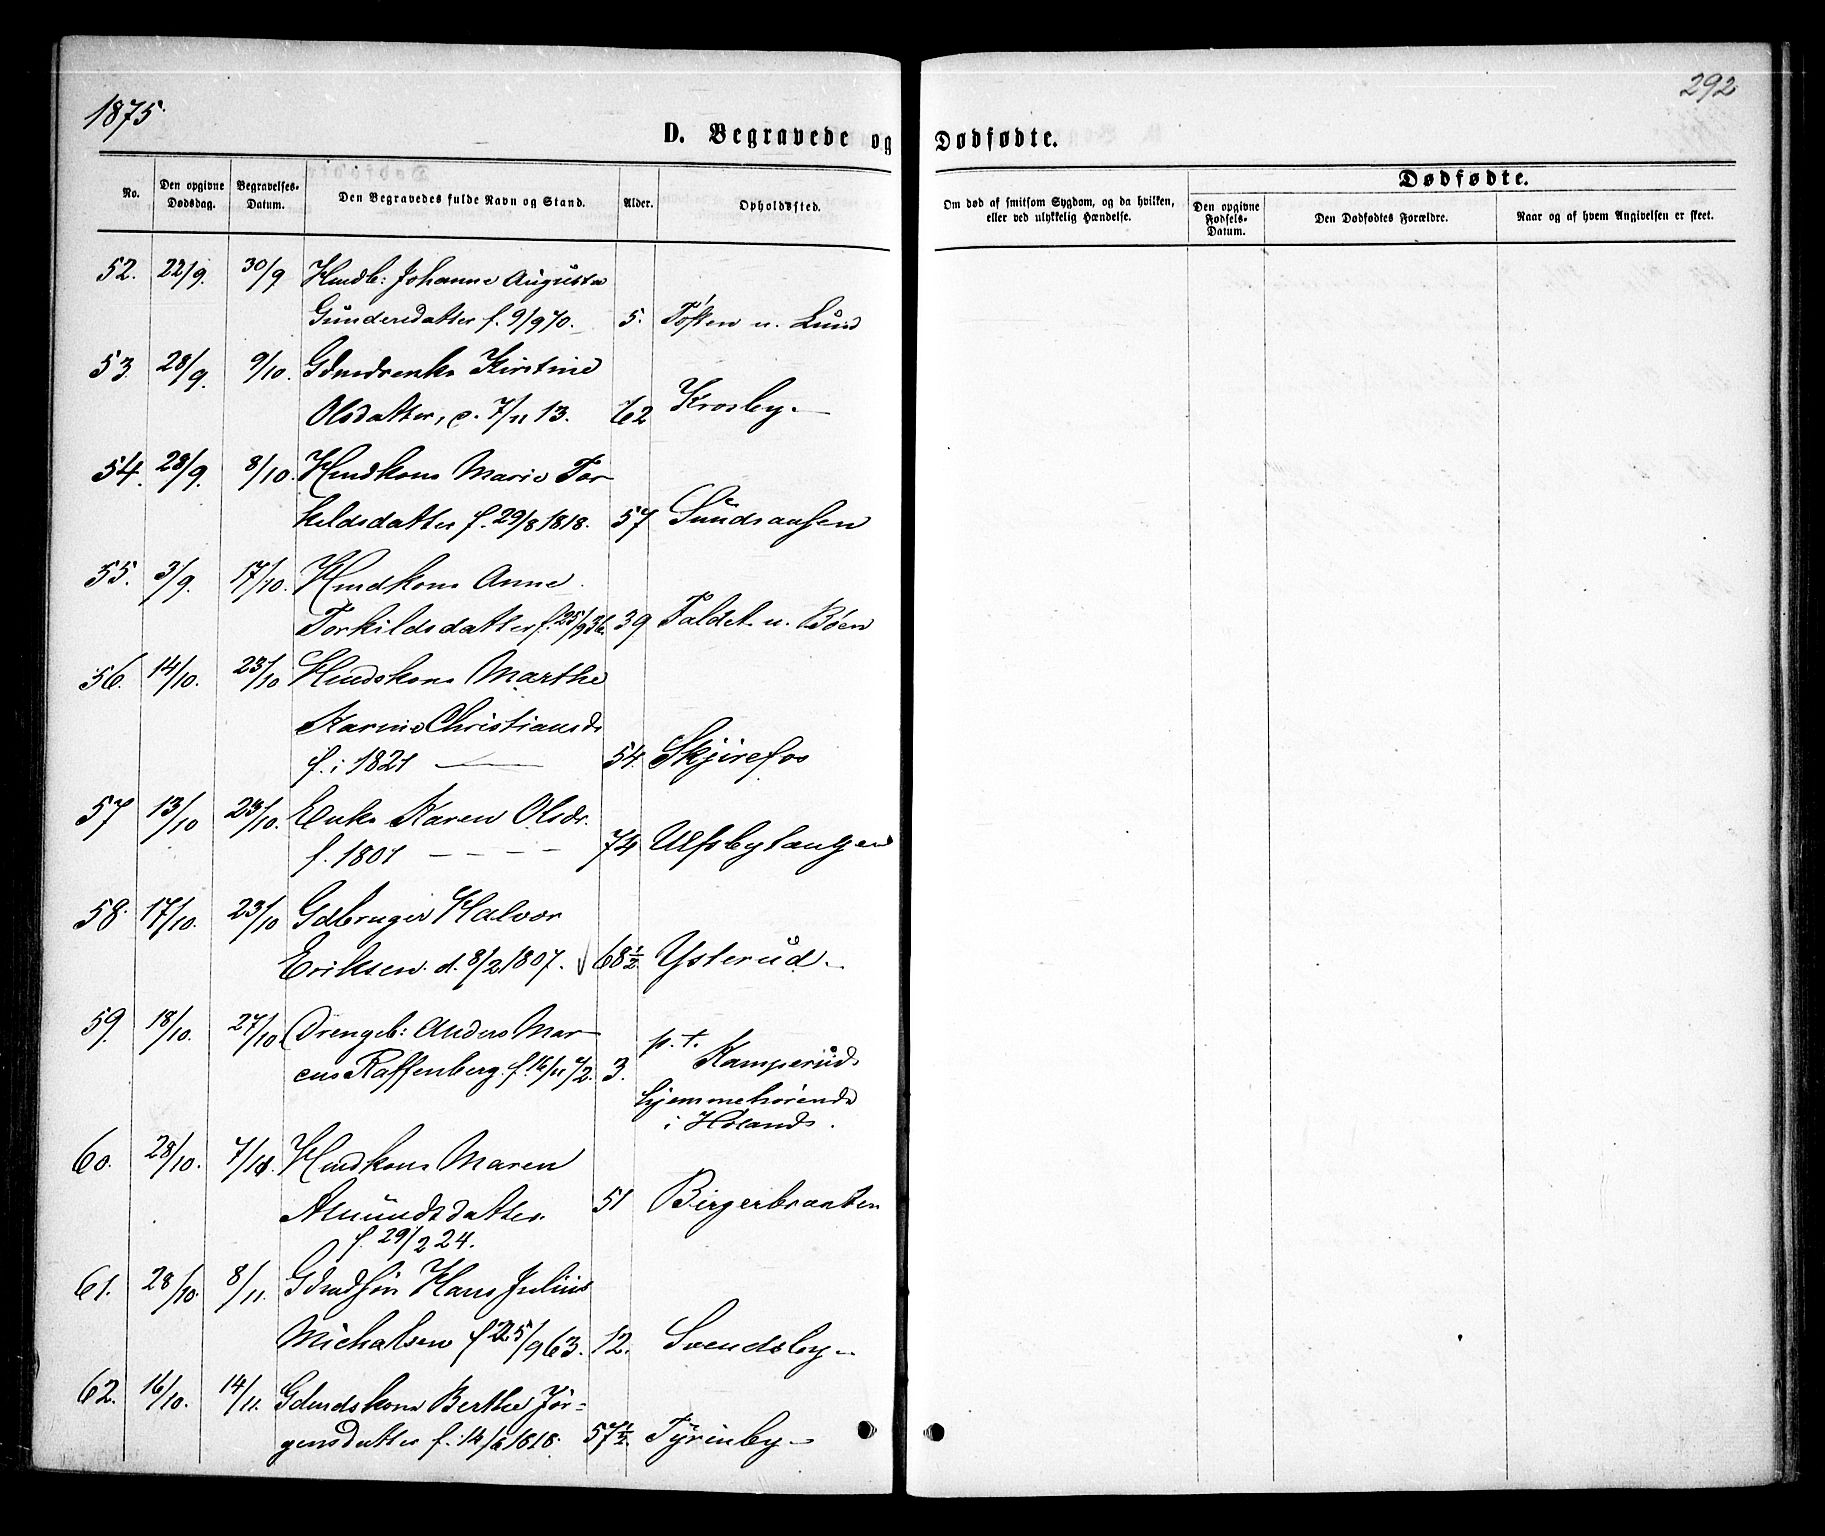 1875.
292
D. Begravede og Dødfødte.
No.
Den opgivne Dødsdag.
Begravelses-Datum.
Den Begravedes fulde Navn og Stand.
Alder.
Opholdssted.
Om død af smitsom Sygdom, og da hvilken, eller ved ulykkelig Hændelse.
Dødfødte.
Den opgivne Fødsels-Datum.
Den Dødfødtes Forældre.
Naar og af hvem Angivelsen er skeet.
52. 22/9. 30/9 Hmdb: Johanne Augusta
Gundersdatter f. 9/9 70. 5. Tosken u. Lund
53. 28/9. 9/10. Gdmdsenke Kirstine
Olsdatter, d. 7/11 13. 62 Krosby
54. 28/9. 8/10. Hmdkone Marie Tor
kildsdatter f. 29/8 1818. 57 Sundsaasen
55. 3/9. 17/10. Hmdkone Anne
Torkildsdatter f. 25/9 36. 39 Taldet u. Böen
56. 14/10. 23/10 Hmdskone Marthe
Karine Christiansd.
f. i 1821 54. Skjirefos
57 13/10 23/10. Enke Karen Olsdr.
f. 1801 74 Ulfsbytangen
58. 17/10. 23/10 Gdbruger Halvor
Eriksen d. 8/2 1807. 68½ Ysterud
59. 18/10. 27/10 Drengeb: Anders Mar
cus Raffenberg f. 16/11 72. 3. p. t. Kamperud
hjemmehörende
i Höland.
60. 28/10. 7/11. Hmdkone Maren
Amundsdatter 51 Birgerbraaten
f. 29/2 24.
61. 28/10. 8/11. Gdmdsön Hans Julius
Michalsen f. 25/9 63. 12. Svendsby
62. 16/10. 14/11. Gdmdskone Berthe Jör=
gensdatter f. 14/6 1818. 57½. Tyrinby